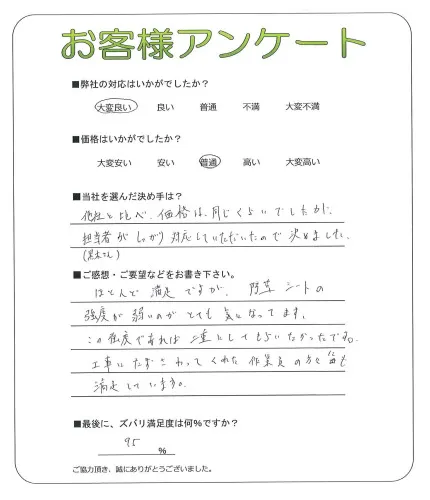 お客様アンケート
■弊社の対応はいかがでしたか？
大変良い 良い 普通 不満 大変不満
■価格はいかがでしたか？
大変安い 安い 普通 高い 大変高い
■当社を選んだ決め手は？
他社と比べ、価格は、同じくらいでしたが、
担当者がしっかり対応していただいたので決めました。
■ご感想・ご要望などをお書き下さい。
ほとんど満足ですが、防草シートの
強度が弱いのがとても気になってます。
この強度であれば二重にしてもらいたかったです。
工事にたずさわってくれた作業員の方々にも
満足しています。
■最後に、ズバリ満足度は何%ですか？
95 %
ご協力頂き、誠にありがとうございました。